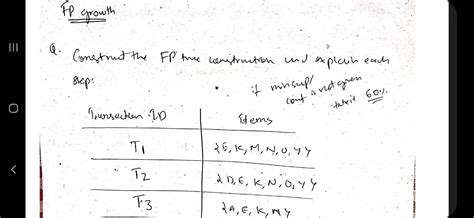 FP growth
Q. Construct the FP tree construction and explain each
step:
if minsup/
conf is not given
take it 60%
Transaction ID Items
T1 {E, K, M, N, O, Y}
T2 {D, E, K, N, O, Y}
T3 {A, E, K, M}